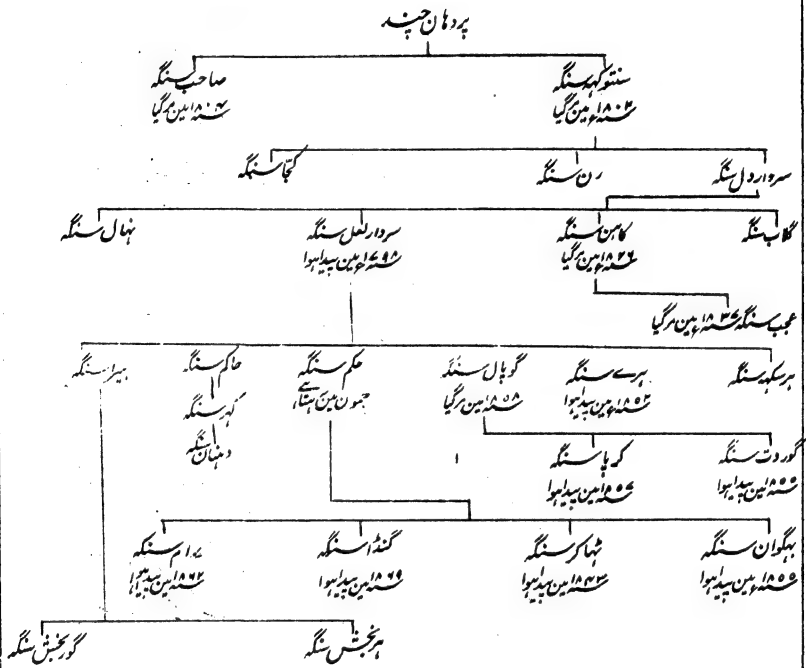 پردہان چند
سنتوکہہ سنگہ
سنہ ۱۸۰۳ء مین مرگیا
صاحب سنگہ
سنہ ۱۸۰۴ مین مرگیا
سردار دل سنگہ
رن سنگہ
کجّا سنگہ
گلاب سنگہ
کاہن سنگہ
سنہ ۱۸۲۶ء مین مرگیا
سردار لعل سنگہ
سنہ ۱۷۹۸ء مین پیدا ہوا
نہال سنگہ
عجب سنگہ سنہ ۱۸۳۷ء مین مرگیا
ہر سکہہ سنگہ
ہرے سنگہ
سنہ ۱۸۵۲ء مین پیدا ہوا
گوپال سنگہ
سنہ ۱۸۵۸ء مین مرگیا
حکم سنگہ
جمون مین ہتا ہے
حاکم سنگہ
کہر سنگہ
دہنان سنگہ
ہیرا سنگہ
گوردت سنگہ
سنہ ۱۸۵۵ مین پیدا ہوا
کرپا سنگہ
سنہ ۱۸۵۷ مین پیدا ہوا
بہگوان سنگہ
سنہ ۱۸۵۵ء مین پیدا ہوا
ٹہاکر سنگہ
سنہ ۱۸۴۳ء مین پیدا ہوا
گنڈا سنگہ
سنہ ۱۸۶۹ مین پیدا ہوا
رام سنگہ
سنہ ۱۸۶۲ مین پیدا ہوا
ہربخش سنگہ
گوربخش سنگہ